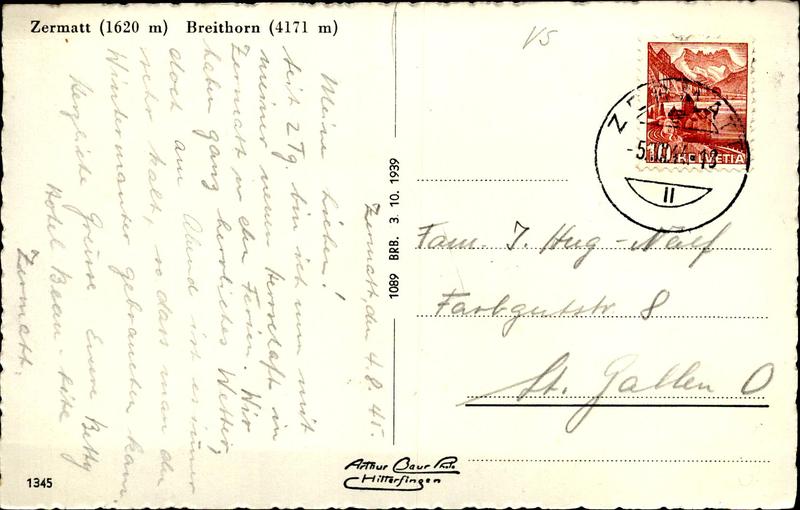 Zermatt (1620 m) Breithorn (4171 m)
VS
Zermatt, den 4.8.45.
Meine Lieben!
Seit 2 Tg. bin ich nun mit
meiner neuen Herrschaft in
Zermatt in den Ferien. Wir
haben ganz herrliches Wetter,
doch am Abend ist es immer
sehr kalt, so dass man den
Wintermantel gebrauchen kann.
Herzliche Grüsse Eure Betty
Hotel Beau-Site
Zermatt.
1089 BRB. 3. 10. 1939
ZERMATT
HELVETIA
10
II
Fam. J. Hug-Naef
Farbgutstr 8
St. Gallen O
Arthur Baur Phot.
Hitterfingen
1345